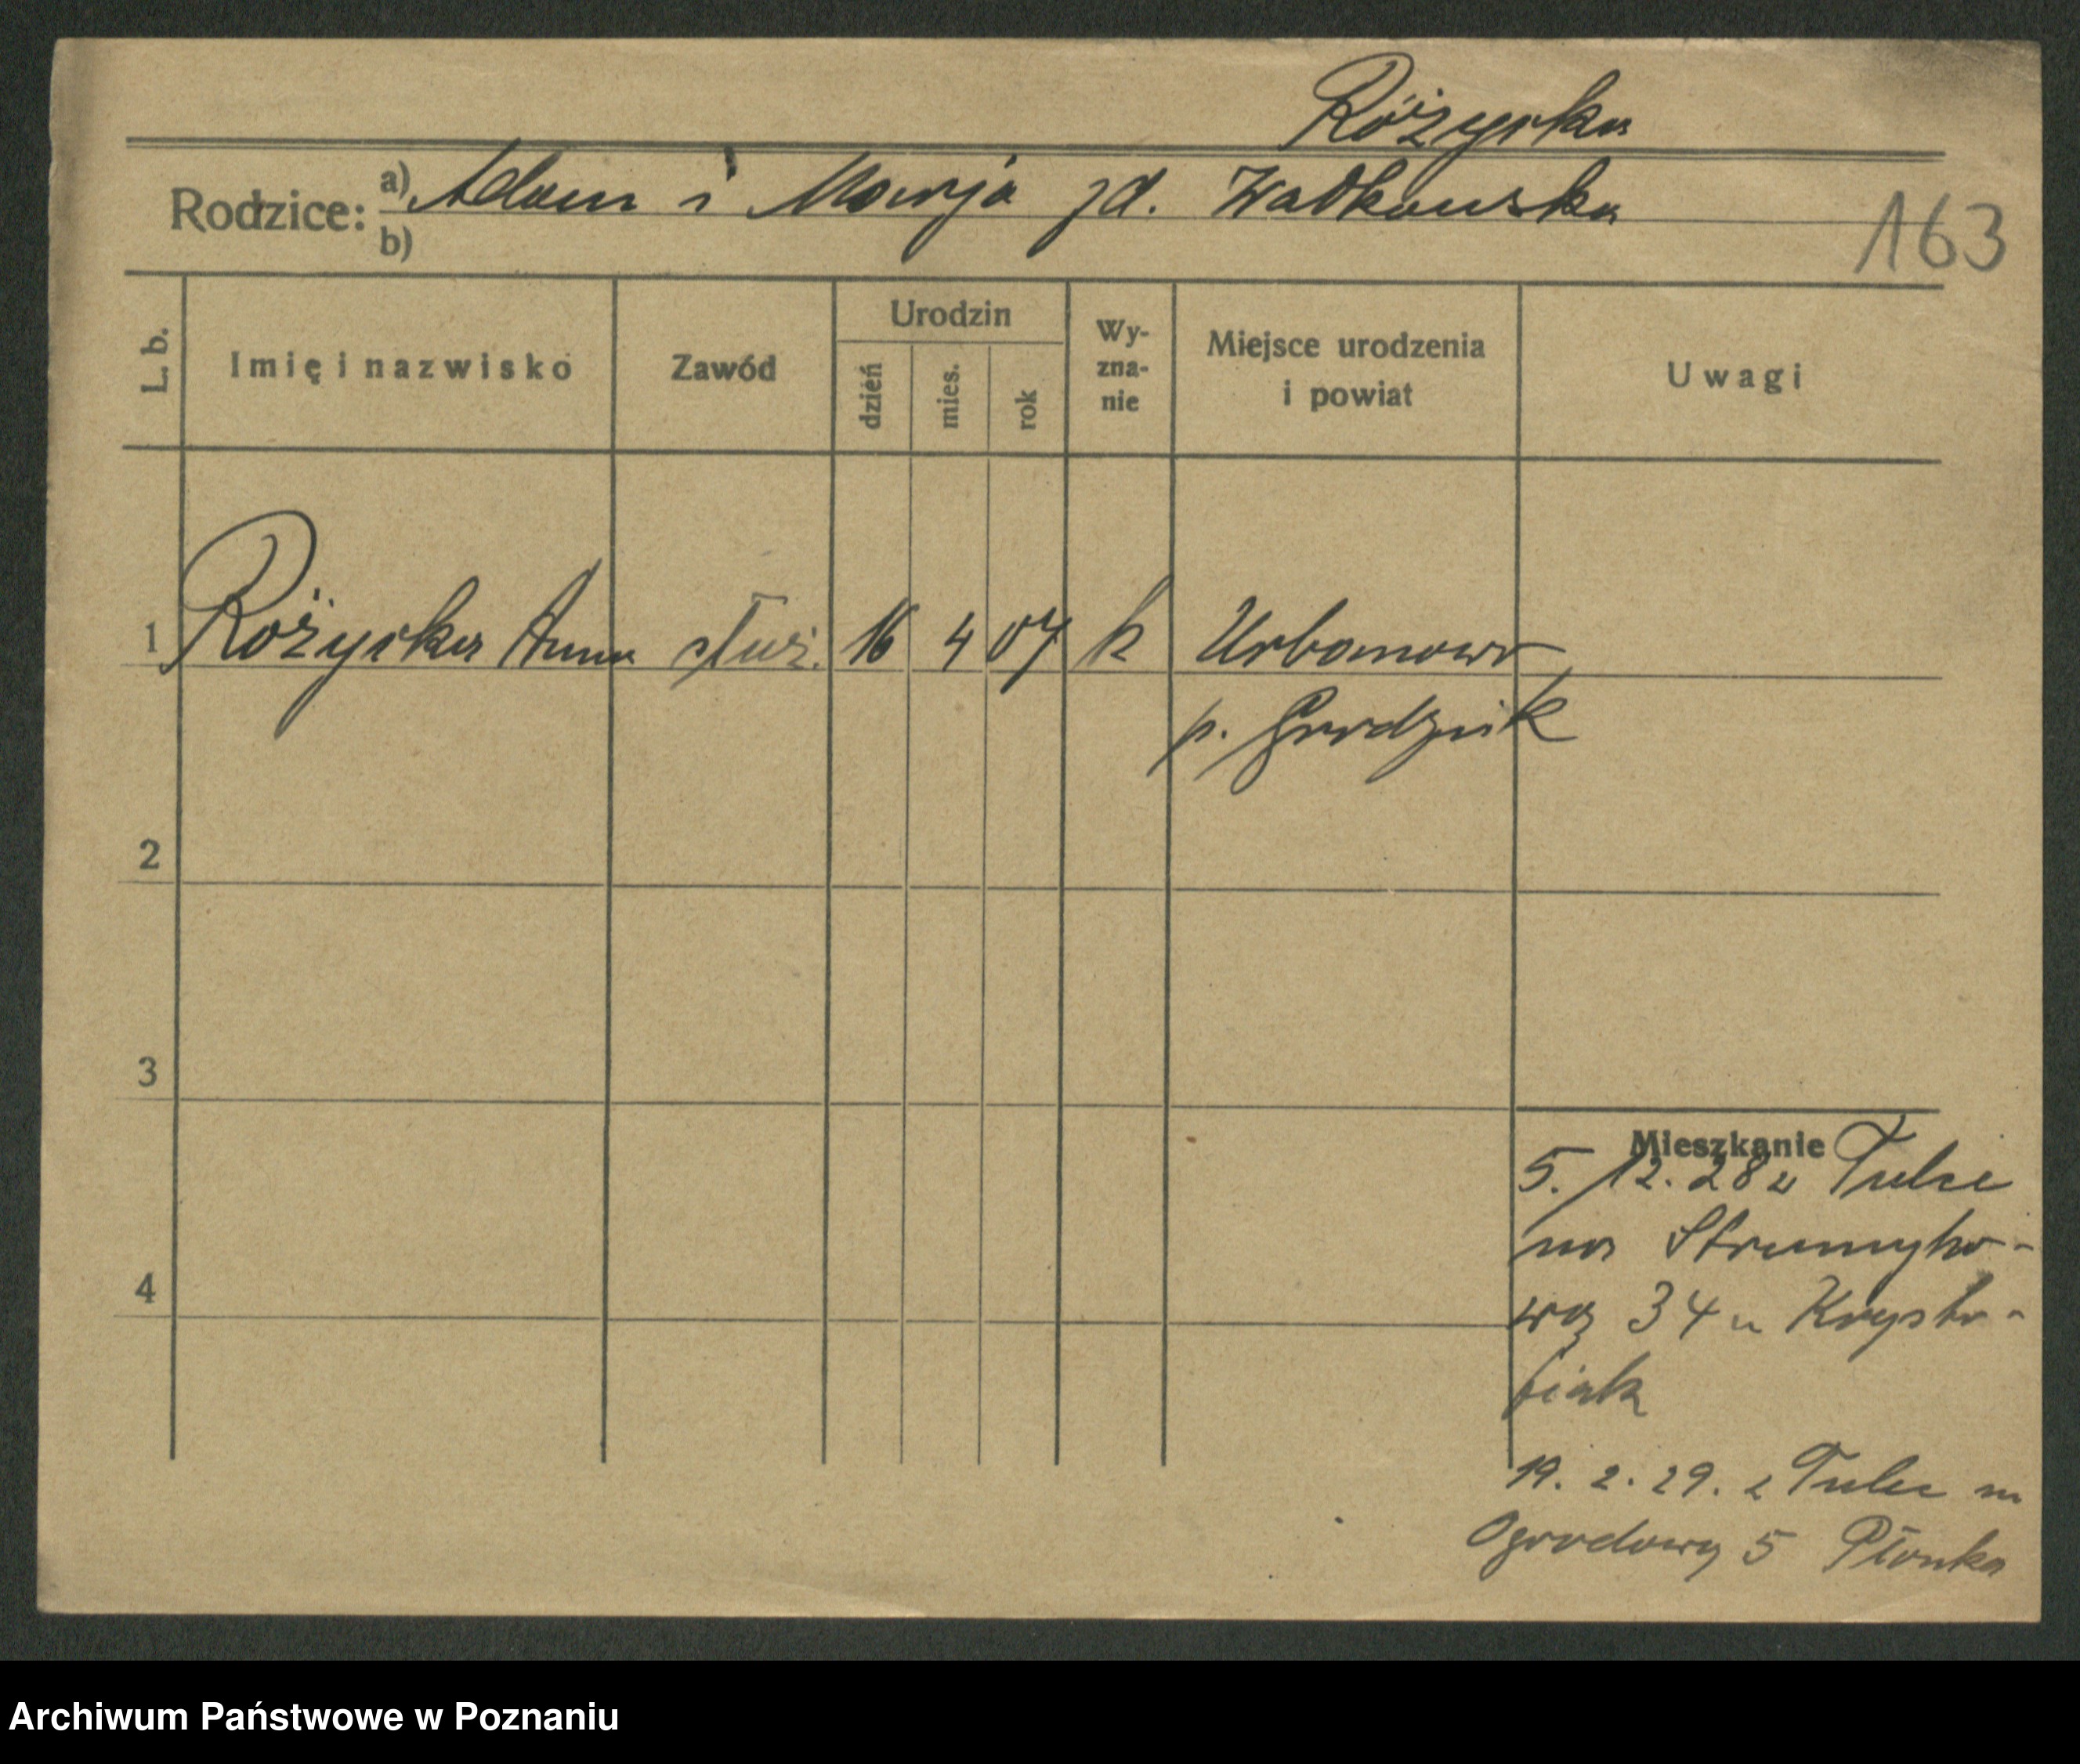 Różycka
Rodzice: a) Adam i Marja zd. Watkowska
b)
163
L. b.
Imię i nazwisko
Zawód
Urodzin
dzień
mies.
rok
Wy-
zna-
nie
Miejsce urodzenia
i powiat
Uwagi
1 Różycka Anna służ. 16 4 07 k Urbanowo
p. Grodzisk
2
3
4
Mieszkanie
5. 12. 28 z Tulce
na Strumyko-
wą 34 u Krysto-
fiak
19. 2. 29. z Tulce na
Ogrodową 5 Płonka
Archiwum Państwowe w Poznaniu